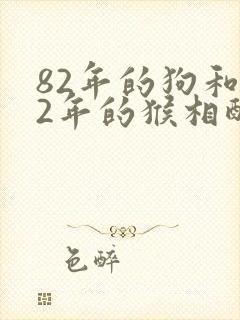 82年的狗和
2年的猴相配
色醉